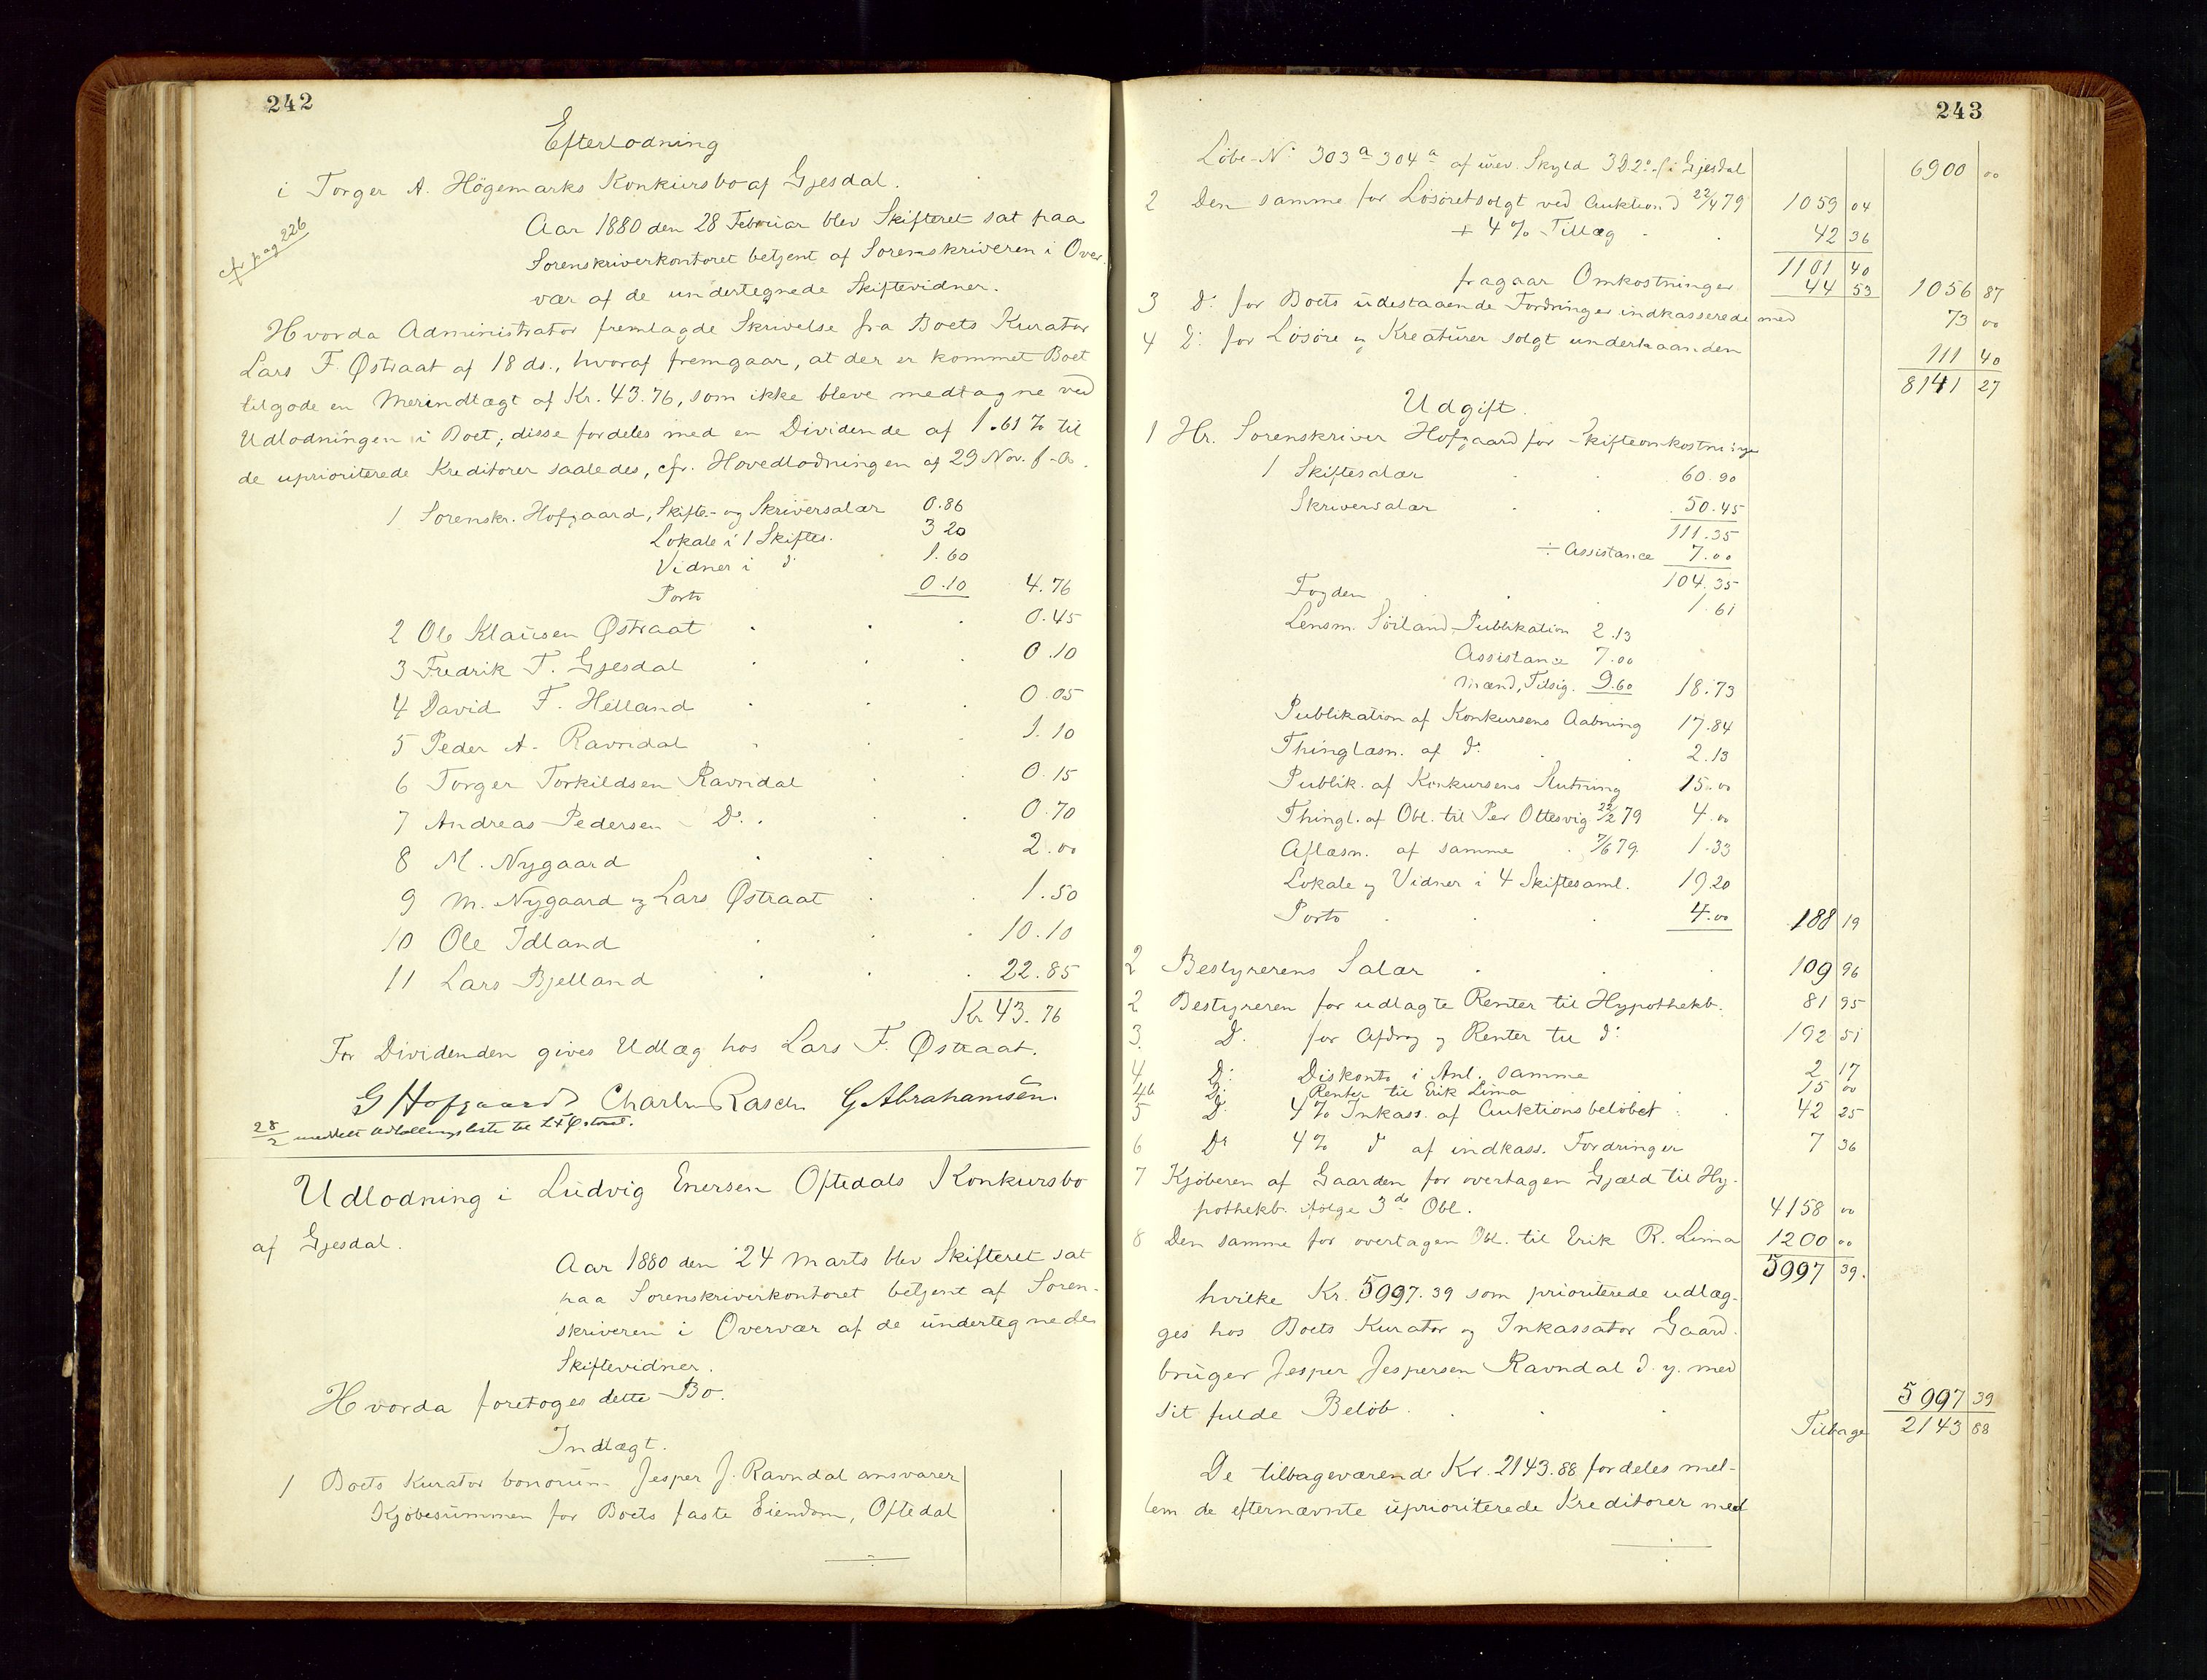 242
Efterlodning
i Torger A. Högemarks Konkursbo af Gjesdal.
cfr pag 226
Aar 1880 den 28 Februar blev Skifteret sat paa
Sorenskriverkontoret betjent af Sorenskriveren i Over-
vær af de undertegnede Skiftevidner.
Hvorda Administrator fremlagde Skrivelse fra Boets Kurator
Lars F. Østraat af 18 ds., hvoraf fremgaar, at der er kommet Boet
tilgode en Merindtægt af Kr. 43.76, som ikke bleve medtagne ved
Udlodningen i Boet; disse fordeles med en Dividende af 1.61 % til
de uprioriterede Kreditorer saaledes, cfr. Hovedlodningen af 29 Nov. f.A.
1 Sorenskr. Hofgaard, Skifte- og Skriversalær 0.86
Lokale i 1 Skiftes. 3 20
Vidner i d: 1.60
Porto 0.10 4.76
2 Ole Klausen Østraat 0.45
3 Fredrik T. Gjesdal 0.10
4 David F. Helland 0.05
5 Peder A. Ravndal 1.10
6 Torger Torkildsen Ravndal 0.15
7 Andreas Pedersen D: 0.70
8 M. Nygaard 2.00
9 M. Nygaard og Lars Østraat 1.50
10 Ole Idland 10.10
11 Lars Bjelland 22.85
Kr 43.76
For Dividenden gives Udlæg hos Lars F. Østraat.
G Hofgaard Charles Rasch G Abrahamsen.
28/2 meddelt Udlodningsliste til L F Østraat.
Udlodning i Ludvig Enersen Oftedals Konkursbo
af Gjesdal.
Aar 1880 den 24 Marts blev Skifteret sat
paa Sorenskriverkontoret betjent af Soren-
skriveren i Overvær af de undertegnede
Skiftevidner.
Hvorda foretoges dette Bo.
Indtægt.
1 Boets Kurator bonorum Jesper J. Ravndal ansvarer
Kjøbesummen for Boets faste Eiendom, Oftedal
243
Löbe-No 303a 304a af urev. Skyld 3D. 2 i Gjesdal 6900 00
2 Den samme for Løsøret solgt ved Auktion d 22/4 79 1059 04
+ 4 % Tillæg 42 36
1101 40
fragaar Omkostninger 44 53 1056 87
3 D: for Boets udestaaende Fordringer indkasserede med 73 00
4 D: for Løsøre og Kreaturer solgt underhaanden 111 40
8141 27
Udgift.
1 Hr. Sorenskriver Hofgaard for Skifteomkostninger
1 Skiftesalær 60.90
Skriversalær 50.45
111.35
÷ Assistance 7.00
104.35
Fogden 1.61
Lensm. Söiland Publikation 2.13
Assistance 7.00
Mænd, Tilsig. 9.60 18.73
Publikation af Konkursens Aabning 17.84
Thinglæsn. af d: 2.13
Publik. af Konkursens Slutning 15.00
Thingl. af Obl. til Per Ottesvig 22/2 79 4.00
Aflæsn. af samme 7/6 79. 1.33
Lokale og Vidner i 4 Skiftesaml. 19.20
Porto 4.00 188 19
2 Bestyrerens Salær 109 96
2 Bestyreren for udlagte Renter til Hypothekb. 81 95
3. D. for Afdrag og Renter til d: 192 51
4 D: Diskonto i Anl. samme 2 17
4b D: Renter til Erik Lima 15 00
5 D: 4 % Inkass. af Auktionsbeløbet 42 25
6 D: 4 % d: af indkass. Fordringer 7 36
7 Kjøberen af Gaarden for overtagen Gjæld til Hy-
pothekb. ifølge 3de Obl. 4158 00
8 Den samme for overtagen Obl. til Erik R. Lima 1200 00
5997 39.
hvilke Kr. 5997.39 som prioriterede udlæg-
ges hos Boets Kurator og Inkassator Gaard-
bruger Jesper Jespersen Ravndal d. y. med
sit fulde Beløb. 5997 39
Tilbage 2143 88
De tilbageværende Kr. 2143.88 fordeles mel-
lem de efternævnte uprioriterede Kreditorer med